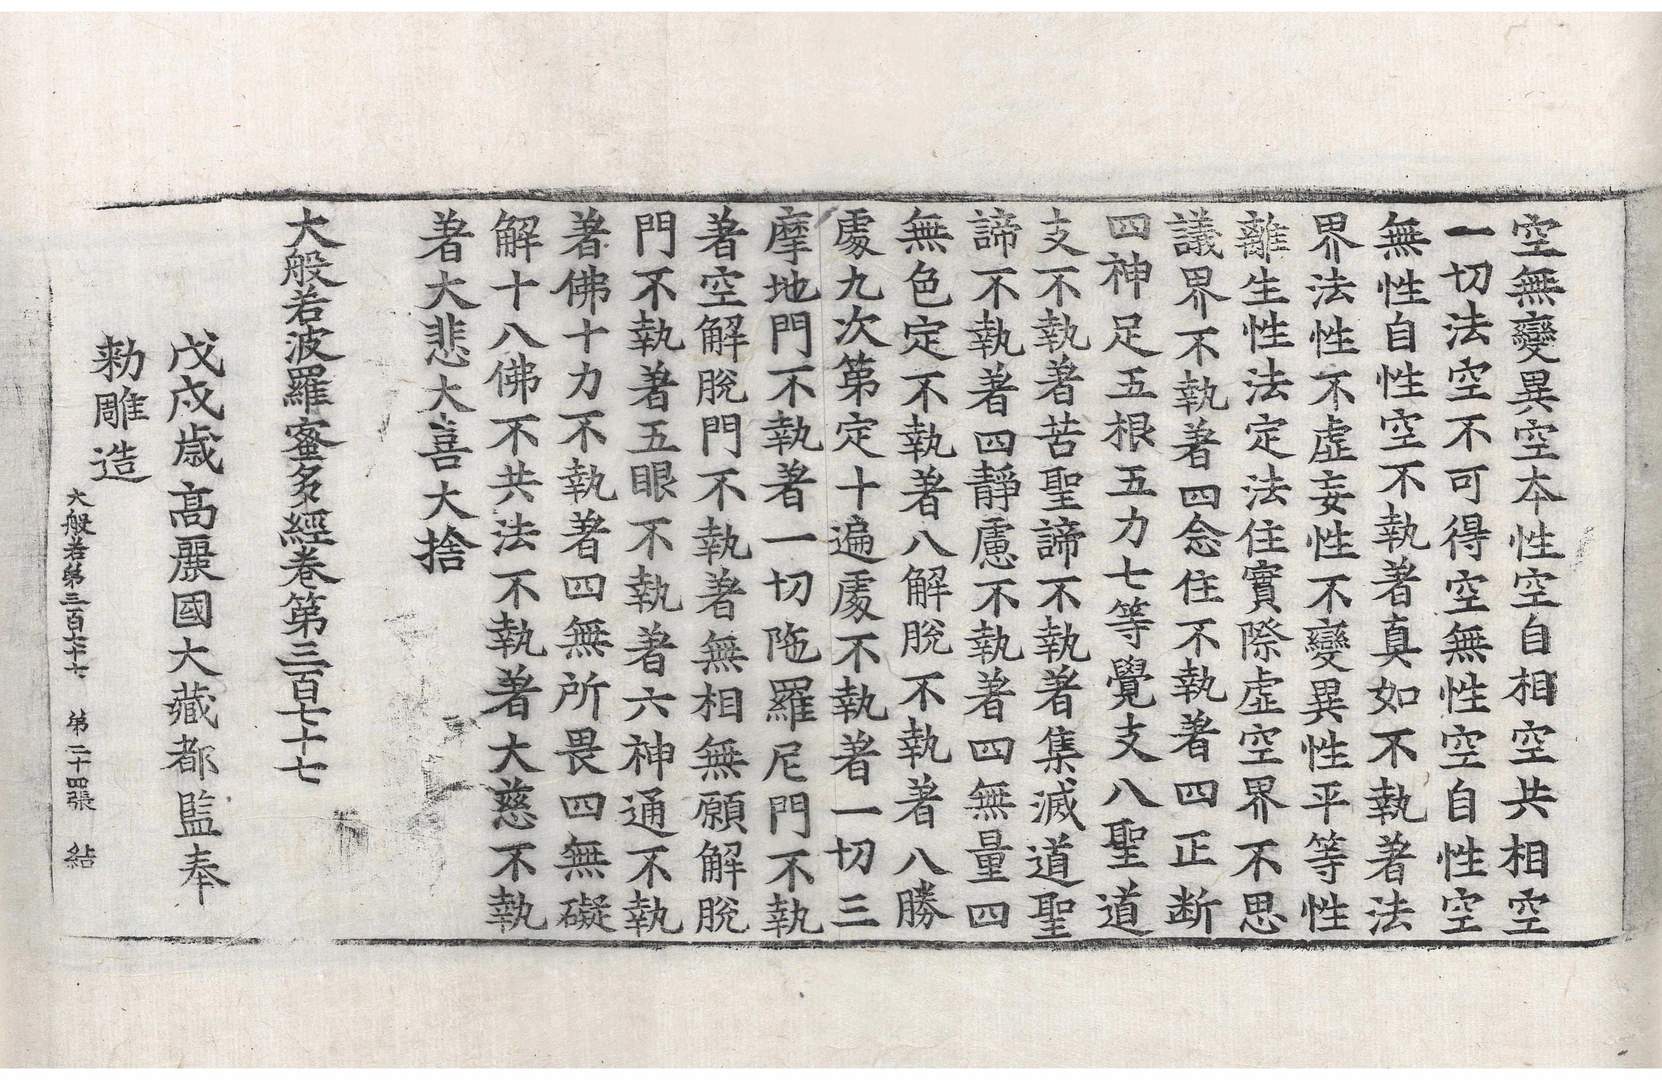 空無變異空本性空自相空共相空
一切法空不可得空無性空自性空
無性自性空不執著真如不執著法
界法性不虛妄性不變異性平等性
離生性法定法住實際虛空界不思
議界不執著四念住不執著四正斷
四神足五根五力七等覺支八聖道
支不執著苦聖諦不執著集滅道聖
諦不執著四靜慮不執著四無量四
無色定不執著八解脫不執著八勝
處九次第定十遍處不執著一切三
摩地門不執著一切陁羅尼門不執
著空解脫門不執著無相無願解脫
門不執著五眼不執著六神通不執
著佛十力不執著四無所畏四無礙
解十八佛不共法不執著大慈不執
著大悲大喜大捨
大般若波羅蜜多經卷第三百七十七
戊戌歲高麗國大藏都監奉
勑雕造
大般若第三百七十七 第二十四張 結